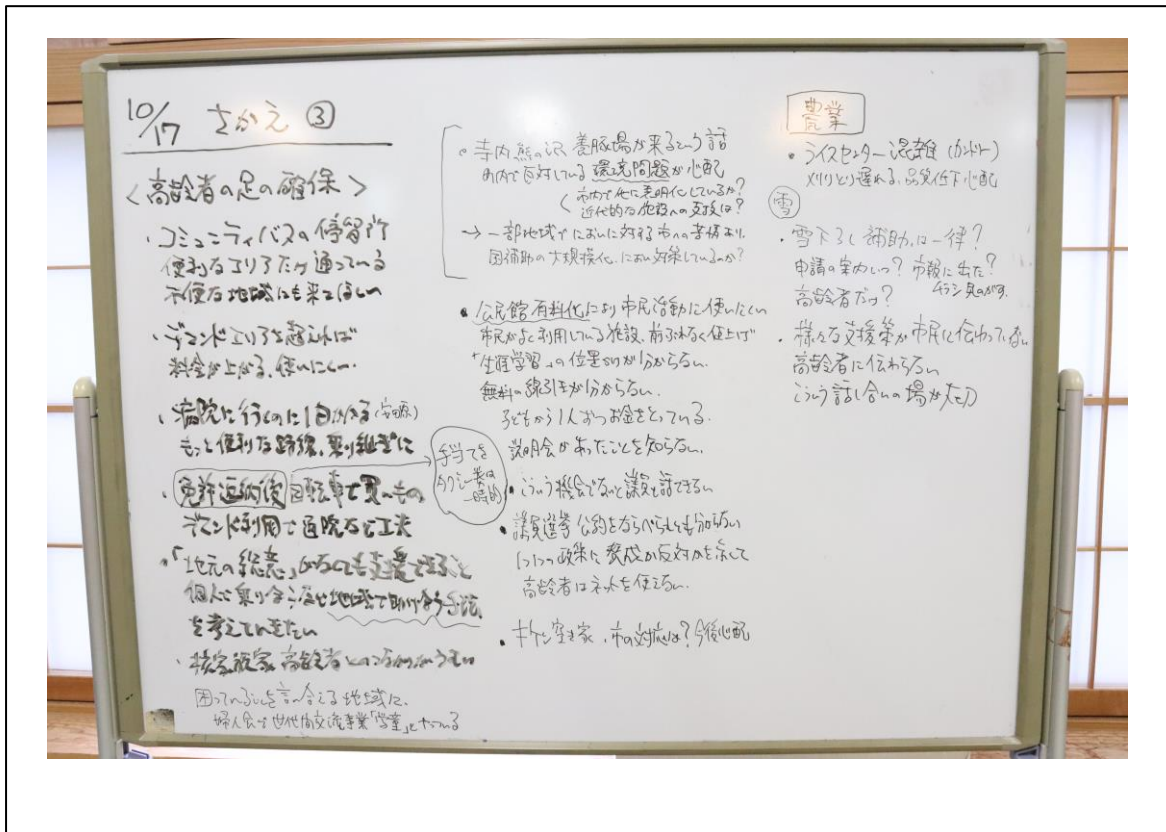 10/17 さかえ ③
<高齢者の足の確保>
・コミュニティバスの停留所
便利なエリアだけ通っている
不便な地域にも来てほしい
・デマンドエリアを超えれば
料金が上がる、使いにくい
・病院に行くのに1日かかる
もっと便利な路線、乗り継ぎに
・免許返納後 自転車で買いもの
デマンド利用で通院など工夫
手当てを
タクシー券は
一時的
・「地元の総意」がなくても支援できること
個人で乗り合うなど地域で助け合う手法
を考えていきたい
・核家族家、高齢者とのつながりがうすい
困っていることを言い合える地域に、
婦人会で世代間交流事業「学童」とやっている
・寺内熊の沢 養豚場が来るという話
町内で反対している 環境問題が心配
市内で他に表明化しているか?
近代的な施設への支援は?
→一部地域でにおいに対する市への苦情あり、
国補助の大規模化、におい対策しているのか?
・公民館有料化により市民活動に使いにくい
市民がよく利用している施設、前ぶれなく値上げ
「生涯学習」の位置づけが分からない、
無料の線引きが分からない、
子どもから1人ずつお金をとっている、
説明会があったことを知らない、
・こういう機会でないと議員と話できない
・議員選挙 公約をならべられても分からない
1つ1つの政策に賛成か反対かを示して
高齢者はネットを使えない、
・キケン空き家、市の対応は?今後心配
農業
・ライスセンター混雑(カントリー)
刈りとり遅れる、品質低下心配
雪
・雪下ろし補助は一律?
申請の案内いつ?市報に出た?
チラシ見のがす、
高齢者だけ?
・様々な支援策が市民に伝わっていない
高齢者に伝わらない
こういう話し合いの場が大切